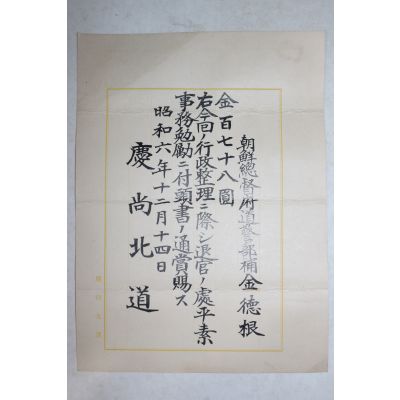 朝鮮總督府道警部補 金德根
金百七十八圓
右今向ノ行政整理ニ際シ退官ノ處平素
事務勉勵ニ付頭書ノ通賞賜ス
昭和六年十二月十四日
慶尚北道